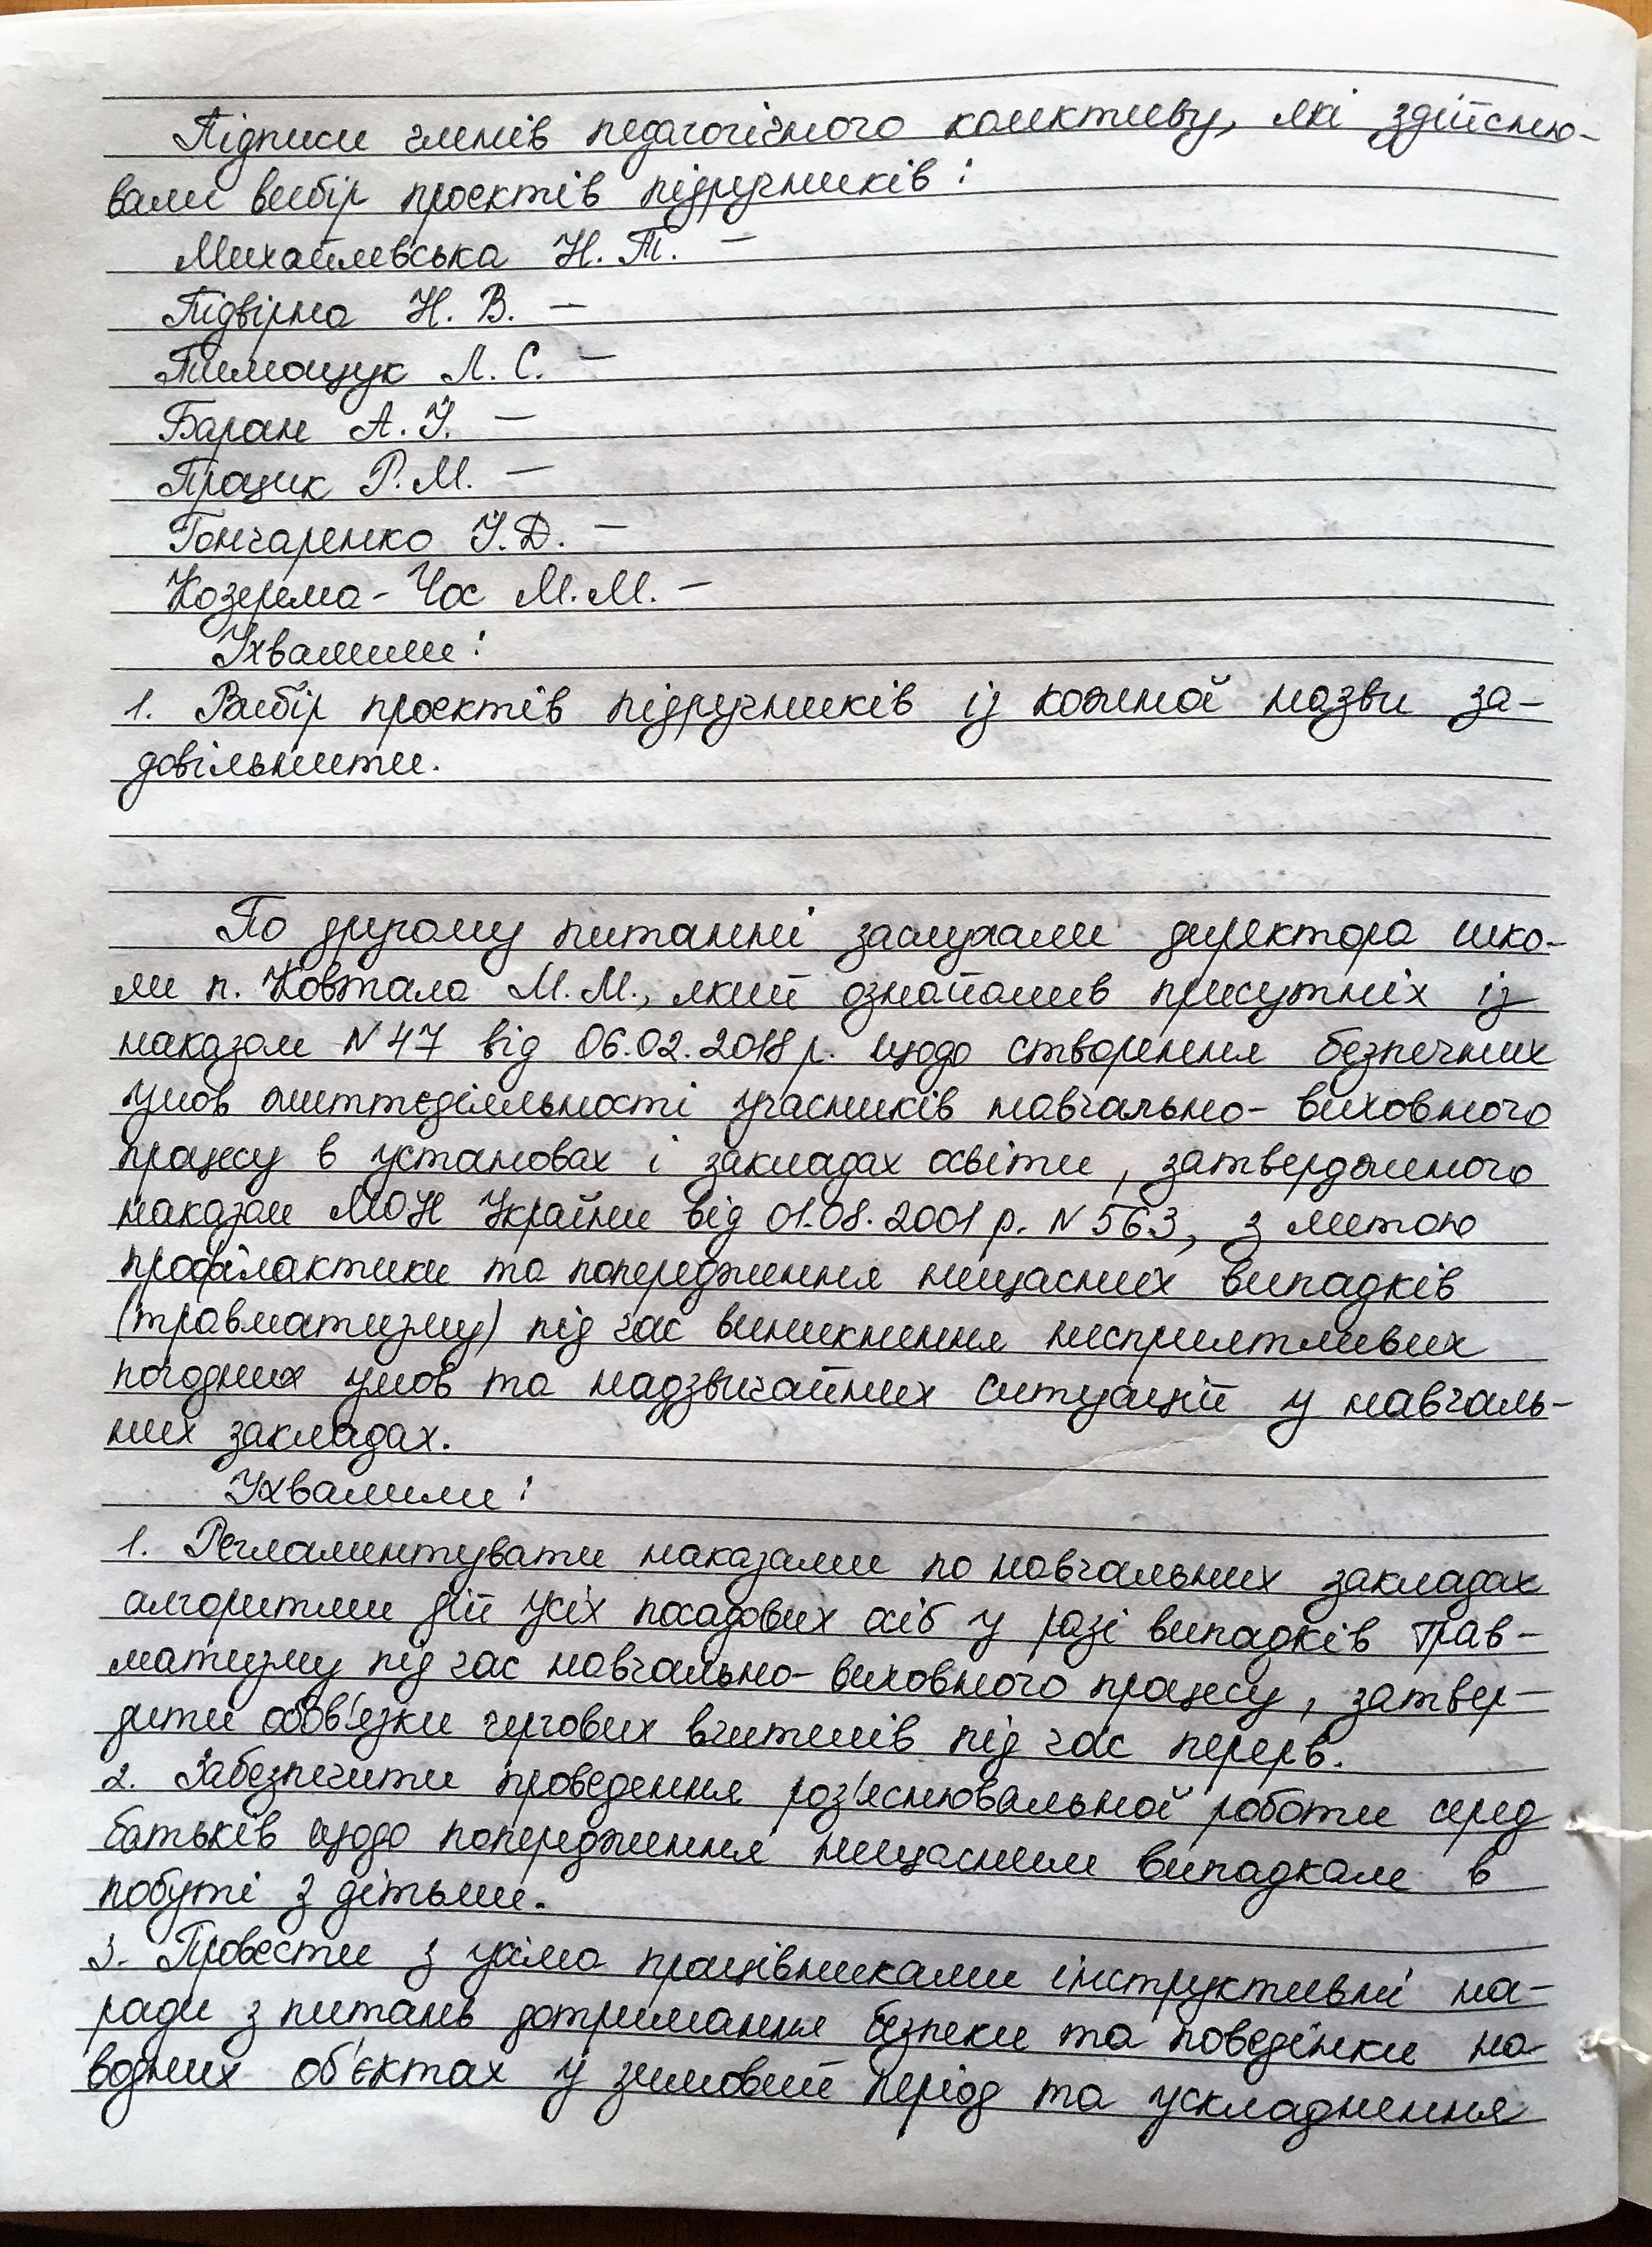 Підписи членів педагогічного колективу, які здійсню-
вали вибір проєктів підручників:
Михайлевська Н. Т. –
Підвірна Н. В. –
Тимощук Л. С. –
Баран А. Й. –
Процик Р. М. –
Гончаренко І. Д. –
Козерема-Чос М. М. –
Ухвалили:
1. Вибір проєктів підручників із кожної назви за-
довільнити.
По другому питанні заслухали директора шко-
ли п. Ковтала М. М., який ознайомив присутніх із
наказом №47 від 06.02.2018 р. щодо створення безпечних
умов життєдіяльності учасників навчально-виховного
процесу в установах і закладах освіти, затвердженого
наказом МОН України від 01.08.2001 р. №563, з метою
профілактики та попередження нещасних випадків
(травматизму) під час виникнення несприятливих
погодних умов та надзвичайних ситуацій у навчаль-
них закладах.
Ухвалили:
1. Регламентувати наказами по навчальних закладах
алгоритми дій усіх посадових осіб у разі випадків трав-
матизму під час навчально-виховного процесу, затвер-
дити обов'язки чергових вчителів під час перерв.
2. Забезпечити проведення роз'яснювальної роботи серед
батьків щодо попередження нещасним випадкам в
побуті з дітьми.
3. Провести з усіма працівниками інструктивні на-
ради з питань дотримання безпеки та поведінки на
водних об'єктах у зимовий період та ускладнення